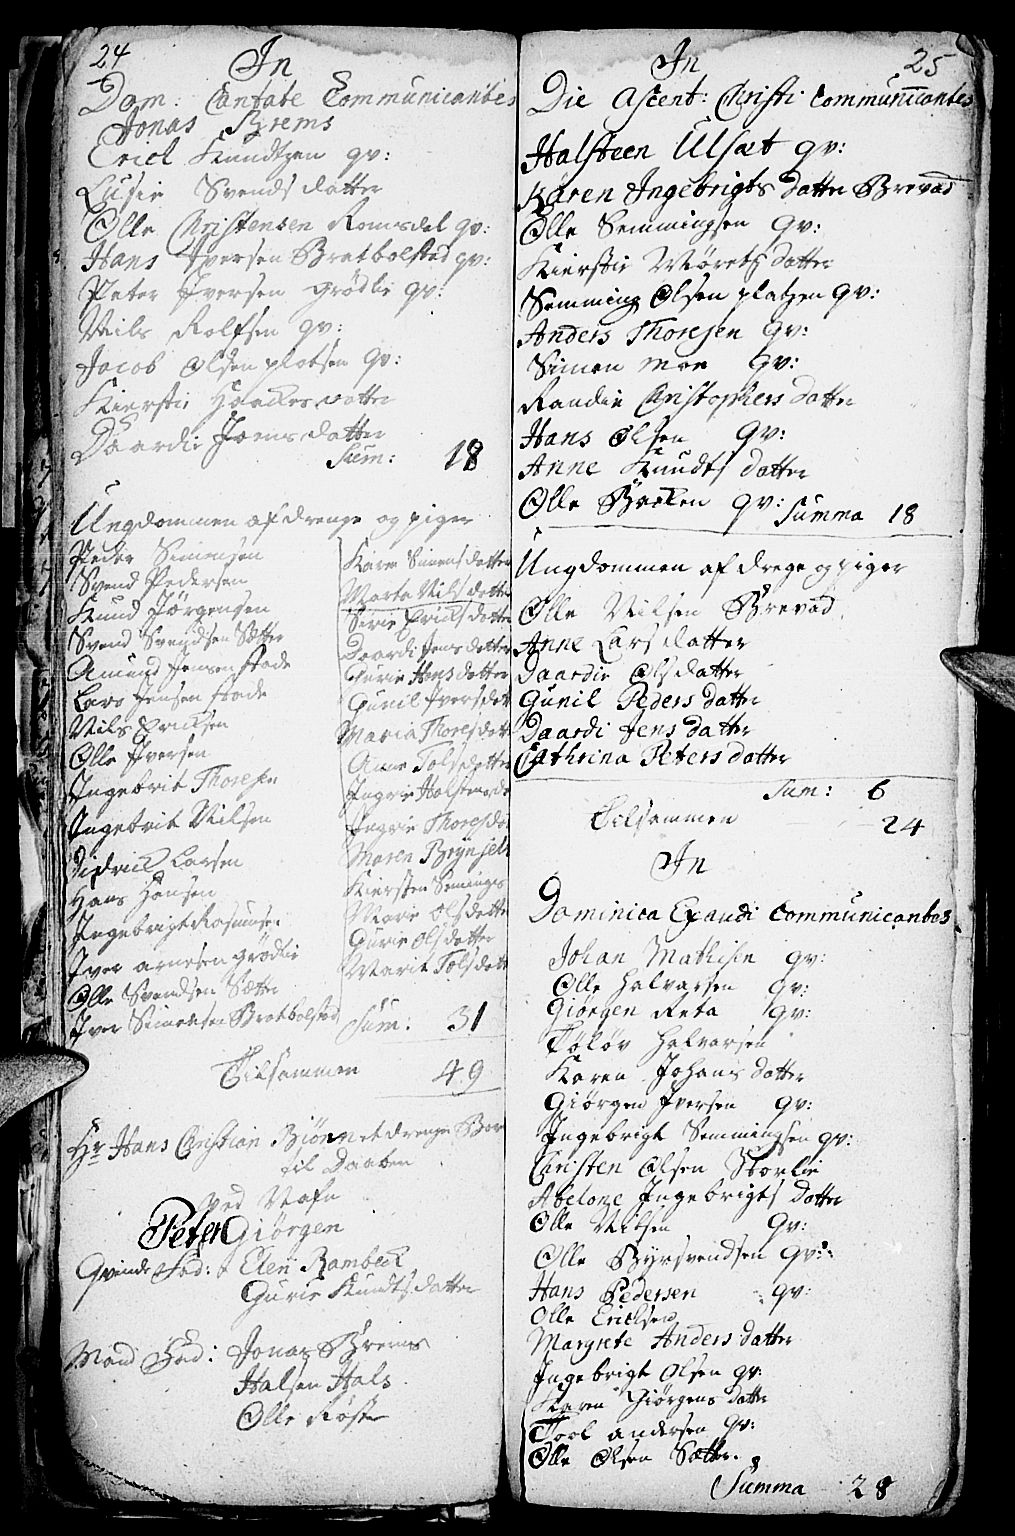 24
In
Dom: Cantate Communicantes
Jonas Brems
Erich Knudtzen qv:
Lusie Svends datter
Olle Christensen Romsdal qv:
Hans Iversen Bratbolstad qv:
Peter Iversen Grødlie qv:
Niels Rolfsen qv:
Jacob Olsen platsen qv:
Kierstie Haackes datter
Daardie Joens datter
Sum: 18
Ungdommen af drenge og piger
Peder Simensen
Svend Pedersen
Knud Jørgensen
Svend Svendsen Sætter
Amund Jensen stade
Lars Jensen stade
Nils Ericksen
Olle Iversen
Ingebrit Thoresen
Ingebrit Nilsen
Didrick Larsen
Hans Hansen
Ingebrigt
Iver arnesen Grødlie
Olle Svendsen Sætter
Iver Simensen Bratbolstad
Karen Simens datter
Marta Nils datter
Sirie Ericks datter
Daardi Jens datter
Gurie Hans datter
Gunil Ivers dat
Maria Thores datt
Anne Tols datter
Ingrie Halstens dat
Ingrie Thores da
Maren Brynjels
Kiersten Seminigs
Marie Ols datter
Gurie Ols datter
Marit Tols datt
Sum: 31
Tilsammen 49
Hr Hans Christian Biønn et drenge Bar
til Daaben
ved Nafn
Peter Giørgen
Qvinde Fad: Elen Rambech
Gurie Knudts datter
Mand Fad: Jonas Brems
Halsen Hals
Olle Røst
25
In
Die Ascent: Christi Communicantes
Halsteen Ulsæt qv:
Karen Ingebrigts datter Brevad
Olle Semmingsen qv:
Kierstie Miørets datter
Semming Olsen platzen qv:
Anders Thoresen qv:
Simen moe qv:
Randie Christophers datter
Hans Olsen qv:
Anne Knudts datter
Olle Bracken qv:
Summa 18
Ungdommen af drege og piger
Olle Nilsen Brevad
Anne Lars datter
Daardie Ols datter
Gunil Peders datter
Daardi Jens datter
Cathrina Peters datter
Sum: 6
Tilsammen 24
In
Dominica Exaudi Communicantes
Johan Mathisen qv:
Olle Halvarsen qv:
Giørgen Reta qv:
Tøløv Halvarsen
Karen Johans datter
Giørgen Iversen qv:
Ingebrigt Semmingsen qv:
Christen Olsen Storlie
Abelone Ingebrigts datter
Olle Nilsen qv:
Olle Byrsvendsen qv:
Hans Pedersen qv:
Olle Ericksen
Margrete Anders datter
Ingebrigt Olsen qv:
Karen Giørgens datter
Tool andersen qv:
Olle Olsen Sætter.
Summa 28